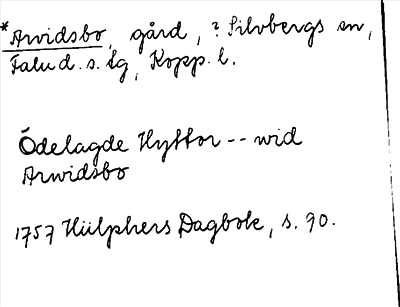 *Arvidsbo, gård, ? Silvbergs sn,
Falu d. s. lg, Kopp. l.
Ödelagde Hyttor -- wid
Arwidsbo
1757 Hülphers Dagbok, s. 90.